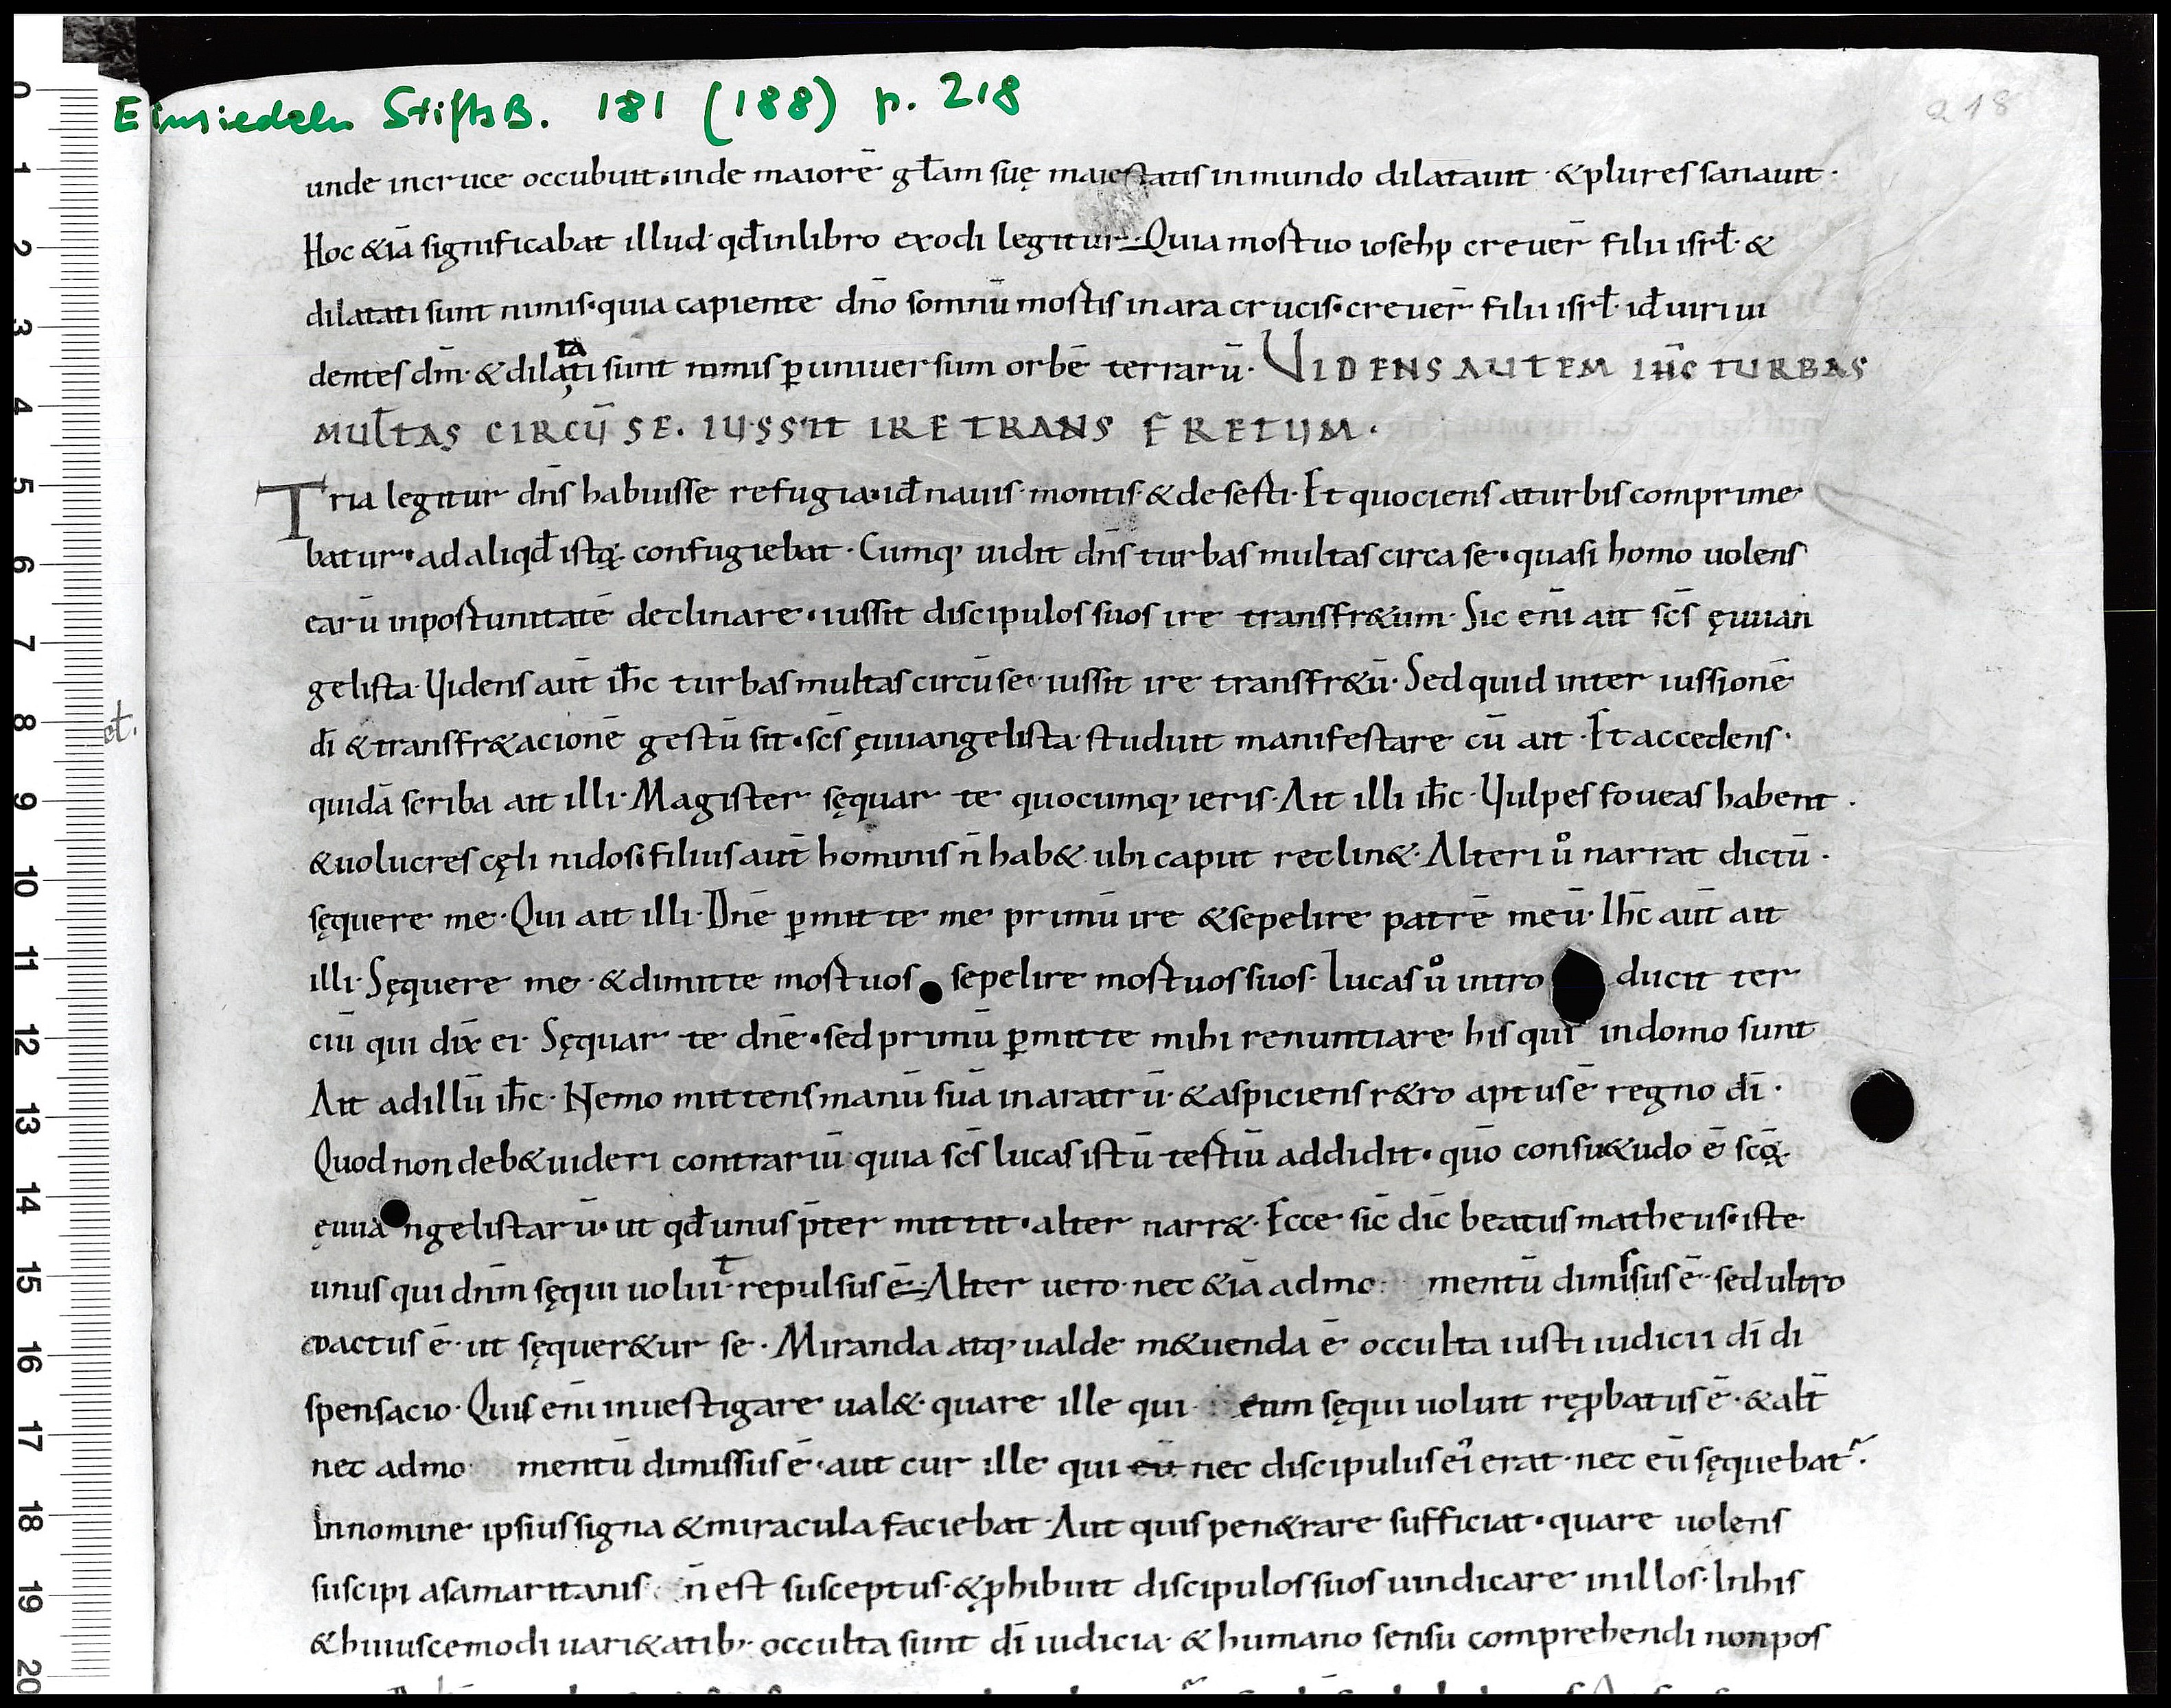 Einsiedeln StiftsB. 181 (188) p. 218
218
unde incruce occubuit·inde maiorē gl̄am suę maiestatis inmundo dilatauit·&plures sanauit·
Hoc &iā significabat illud·qd̄ inlibro exodi legitur·Quia mortuo iosehp creuer̄ filii isrl̄·&
dilatati sunt nimis·quia capiente dn̄o somnū mortis inara crucis·creuer̄ filii isrl̄·id̄ uiri ui
dentes dm̄·&dilatati sunt nimis p̱ uniuersum orbē terrarū· VIDENS AUTEM IH̄C TURBAS
MUL̄TAS CIRCŪ SE. IUSSIT IRE TRANS FRETUM·
Tria legitur dn̄s habuisse refugia·id̄ nauis·montis·&deserti·Et quociens aturbis comprime
batur·ad aliqd̄ istoꝝ confugiebat·Cumq; uidit dn̄s turbas multas circa se·quasi homo uolens
earū inportunitatē declinare·iussit discipulos suos ire transfr&um·Sic eni̅ ait sc̄s ęuuan
gelista·Uidens aūt ih̄c turbas multas circūse·iussit ire transfr&ū·Sed quid inter iussionē
dī &transfr&acionē gestū sit·sc̄s ęuuangelista studuit manifestare cū ait·Et accedens·
et.
quidā scriba ait illi·Magister sęquar te quocumq; ieris·Ait illi ih̄c·Uulpes foueas habent·
&uolucres cęli nidos·filius aūt hominis n̄ hab& ubi caput reclin&·Alteri uͦ narrat dictū·
sęquere me·Qui ait illi·Dn̄e p̱mitte me primū ire &sepelire patrē meū·Ih̄c aūt ait
illi·Sęquere me·&dimitte mortuos sepelire mortuos suos·Lucas uͦ intro ducit ter
ciū qui dix̄ ei·Sęquar te dn̄e·sed primū p̱mitte mihi renuntiare his qui indomo sunt
Ait adillū ih̄c·Nemo mittens manū suā inaratrū·&aspiciens r&ro aptus ē regno dī·
Quod non deb& uideri contrariū quia sc̄s lucas istū tertiū addidit·quō consu&udo ē scoꝝ
ęuua ngelistarū·ut qd̄ unus p̄ter mittit·alter narr&·Ecce sic̄ dic̄ beatus matheus·iste
unus qui dnm̄ sęqui uoluit·repulsus ē·Alter uero·nec &iā admo mentū dimissus ē·sed ultro
coactus ē·ut sęquer&ur se·Miranda atq; ualde m&uenda ē occulta iusti iudicii dī di
spensacio·Quis eni̅ inuestigare ual&·quare ille qui eum sęqui uoluit rep̱batus ē·&alt̄
nec admo mentū dimissus ē·aut cur ille qui eū nec discipulus ei' erat·nec eū sęquebat᷑·
Innomine ipsius signa &miracula faciebat·Aut quis pen&rare sufficiat·quare uolens
suscipi asamaritanis n̄ est susceptus·&p̱hibuit discipulos suos uindicare inillos·Inhis
&huiuscemodi uari&atib; occulta sunt dī iudicia·& humano sensu comprehendi nonpos